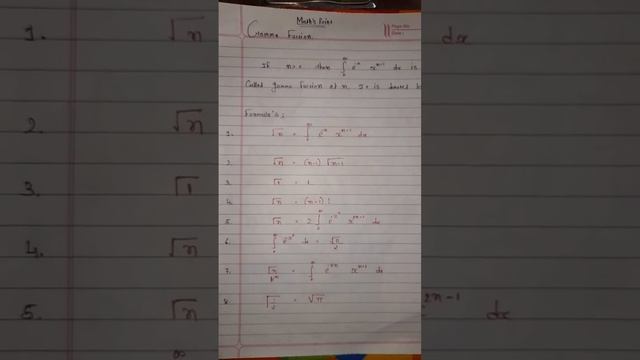 Math's Point
Page No.
Date
Gamma Fucsion
If n>0 then ∫₀^∞ e^-x x^n-1 dx is
Called gamma fucsion of n. It is denoted by
Formula's :
1. √n = ∫₀^∞ e^-x x^n-1 dx
2. √n = (n-1) √n-1
3. √1 = 1
4. √n = (n-1) !
5. √n = 2 ∫₀^∞ e^-x² x^2n-1 dx
6. ∫₀^∞ e^-x² dx = √π/2
7. √n/k^n = ∫₀^∞ e^-kx x^n-1 dx
8. √1/2 = √π
1. √n dx
2. √n
3. √1
4. √n
5. √n 2n-1 dx